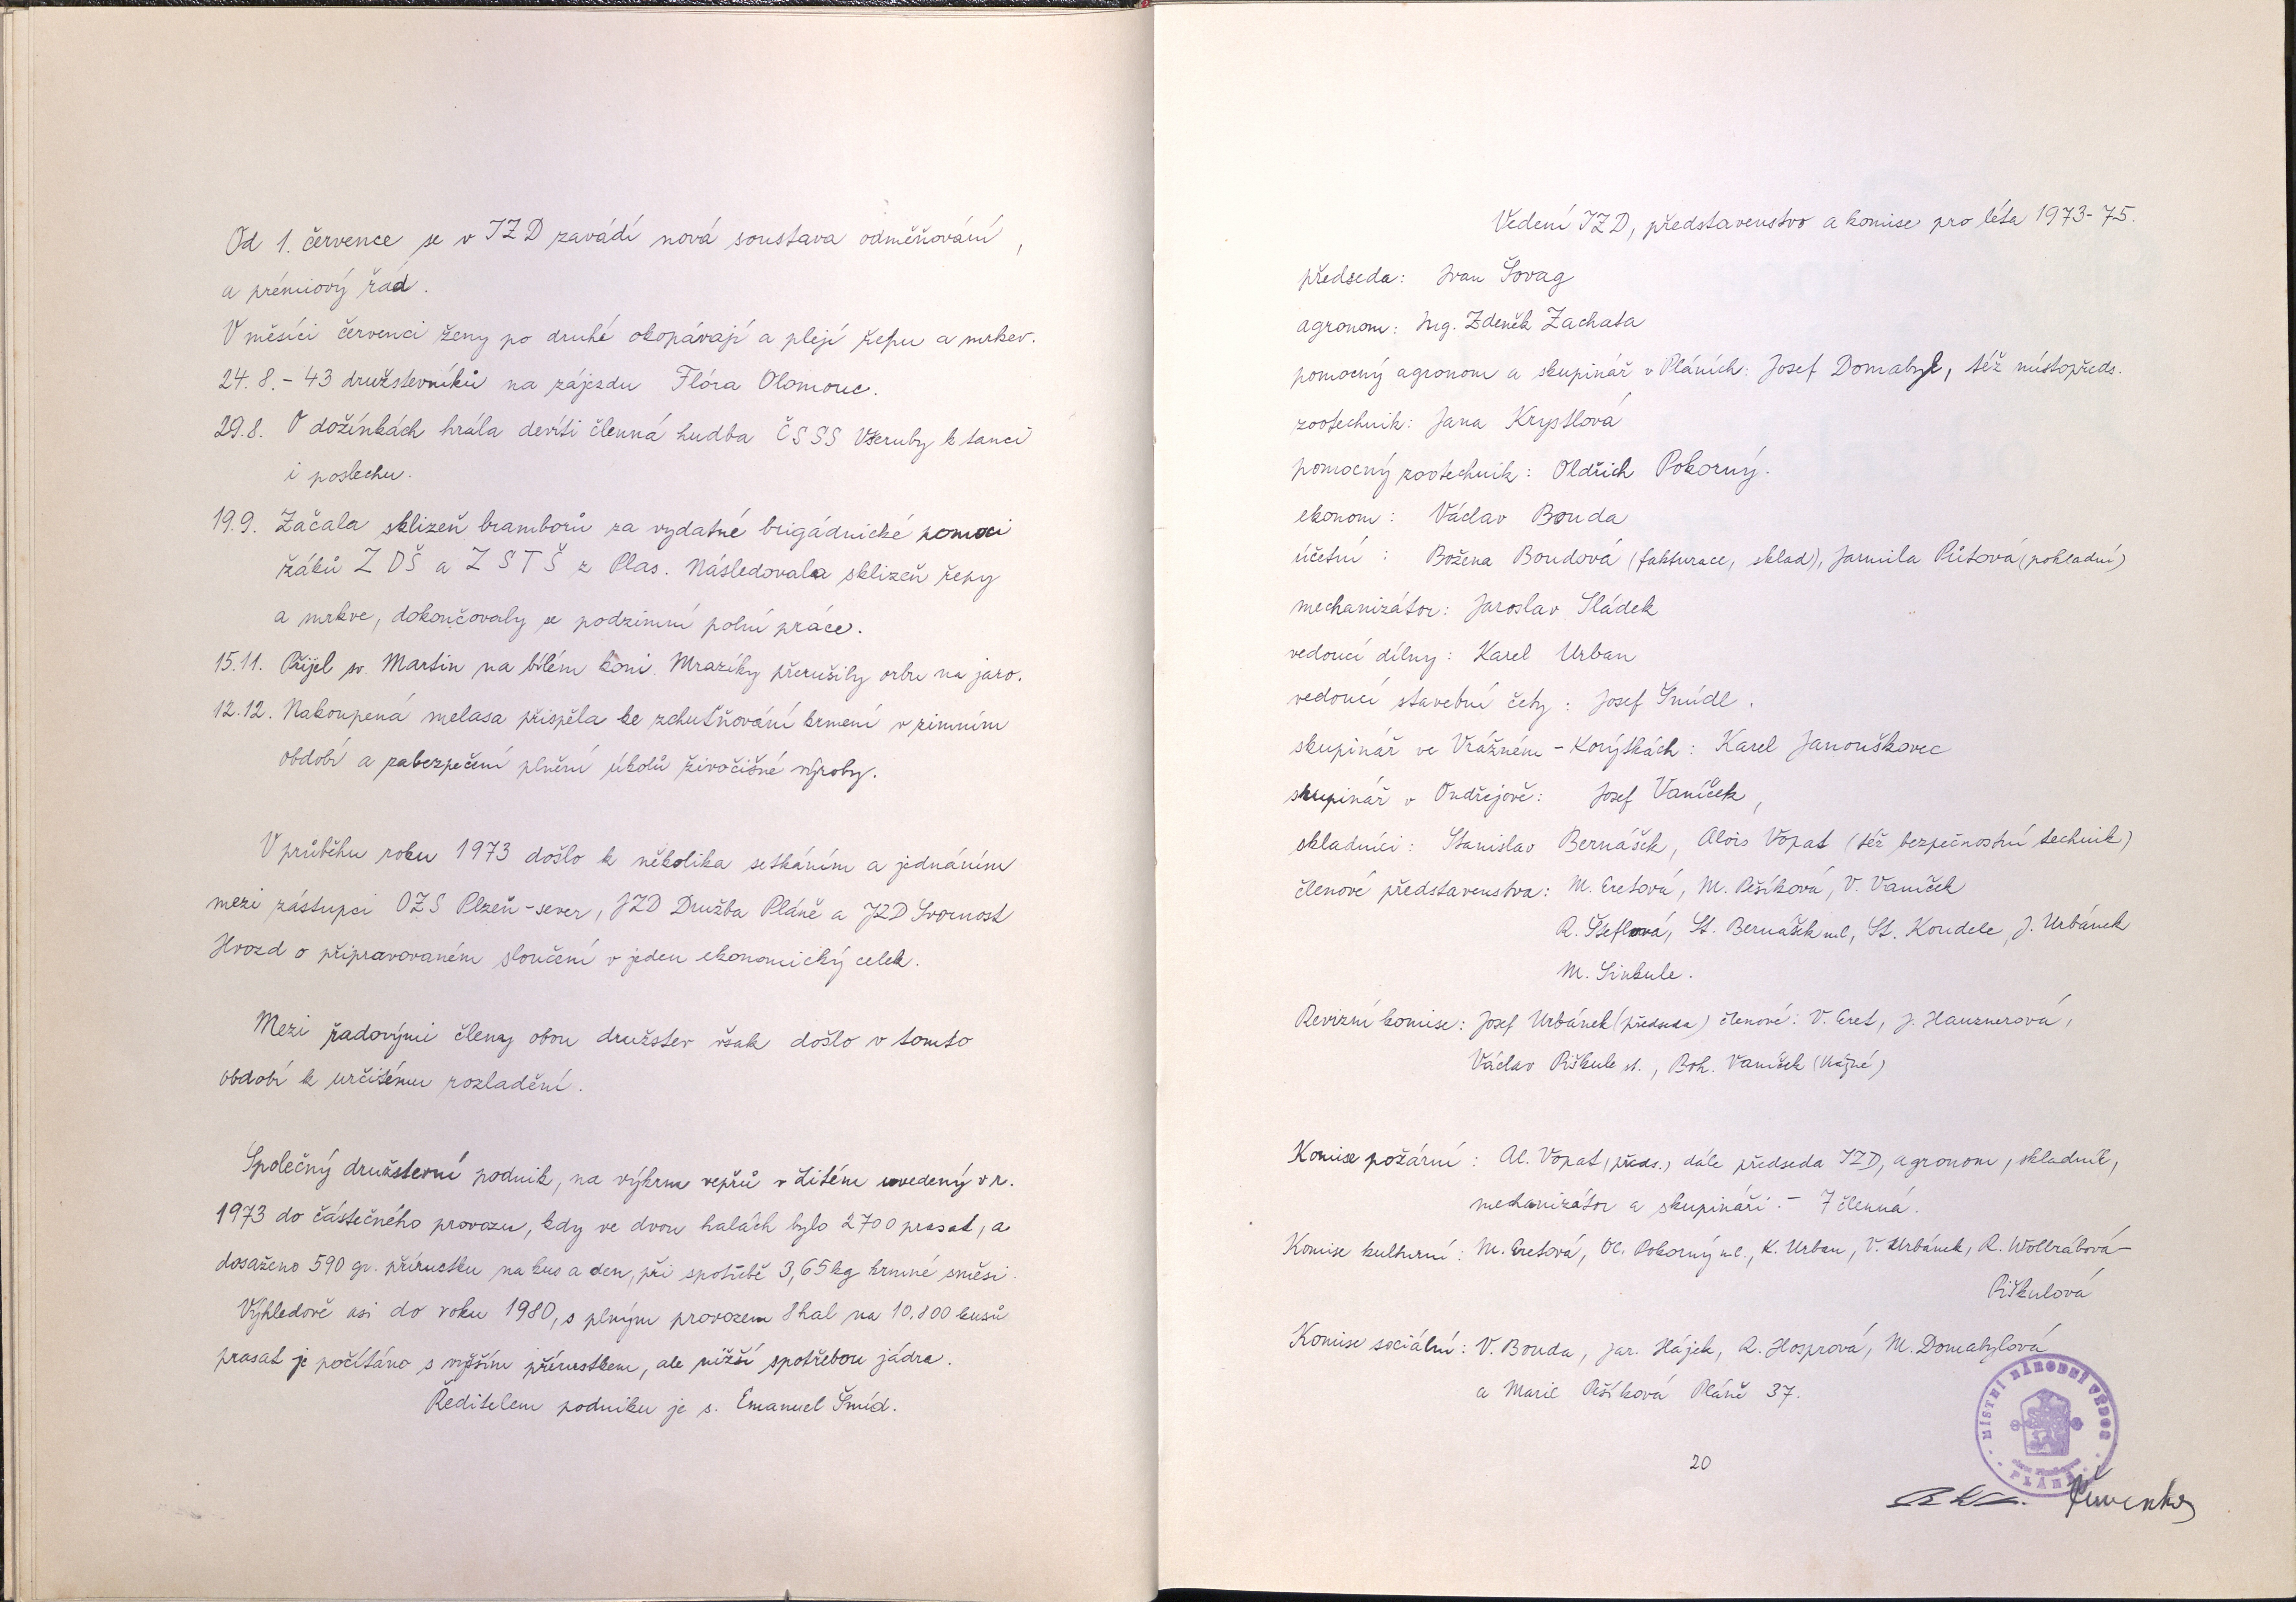 Od 1. července se v JZD zavádí nová soustava odměňování,
a prémiový řád.
V měsíci červenci ženy po druhé okopávají a plejí řepu a mrkev.
24.8. - 43 družstevníků na zájezdu Flóra Olomouc.
29.8. O dožínkách hrála devíti členná hudba ČSSS Všeruby k tanci
i poslechu.
19.9. Začala sklizeň bramborů za vydatné brigádnické pomoci
žáků ZDŠ a ZSTŠ z Plas. Následovala sklizeň řepy
a mrkve, dokončovaly se podzimní polní práce.
15.11. Přijel sv. Martin na bílém koni. Mrazíky přerušily orbu na jaro.
12.12. Nakoupená melasa přispěla ke zchutňování krmení v zimním
období a zabezpečení plnění úkolů živočišné výroby.
V průběhu roku 1973 došlo k několika setkáním a jednáním
mezi zástupci OZS Plzeň-sever, JZD Družba Pláně a JZD Svornost
Hvozd o připravovaném sloučení v jeden ekonomický celek.
Mezi řadovými členy obou družstev však došlo v tomto
období k určitému rozladění.
Společný družstevní podnik, na výkrm vepřů v Žitém uvedený v r.
1973 do částečného provozu, kdy ve dvou halách bylo 2700 prasat, a
dosaženo 590 gr. přírustku na kus a den, při spotřebě 3,65 kg krmné směsi.
Výhledově asi do roku 1980, s plným provozem 8 hal na 10.800 kusů
prasat je počítáno s vyšším přírustkem, ale nižší spotřebou jádra.
Ředitelem podniku je s. Emanuel Šmíd.
Vedení JZD, představenstvo a komise pro léta 1973-75.
předseda: Ivan Šovag
agronom: Ing. Zdeněk Zachata
pomocný agronom a skupinář v Pláních: Josef Domabyl, též místopředs.
zootechnik: Jana Krystlová
pomocný zootechnik: Oldřich Pokorný.
ekonom: Václav Bouda
účetní: Božena Boudová (fakturace, sklad), Jarmila Půtová (pokladní)
mechanizátor: Jaroslav Sládek
vedoucí dílny: Karel Urban
vedoucí stavební čety: Josef Šmídl.
skupinář ve Vrážném - Korýtkách: Karel Janouškovec
skupinář v Ondřejově: Josef Vaníček,
skladníci: Stanislav Bernášek, Alois Vopat (též bezpečnostní technik)
členové představenstva: M. Eretová, M. Pešíková, V. Vaníček
R. Šteflová, St. Bernášek ml, St. Koudele, J. Urbánek
M. Sinkule.
Revizní komise: Josef Urbánek (předseda) členové: V. Eret, J. Hauznerová,
Václav Piškule st., Boh. Vaníček (Vážné)
Komise požární: Al. Vopat (předs.) dále předseda JZD, agronom, skladník,
mechanizátor a skupináři. - 7 členná.
Komise kulturní: M. Eretová, Ol. Pokorný ml., K. Urban, V. Urbánek, R. Wollrábová-
Piškulová
Komise sociální: V. Bouda, Jar. Hájek, R. Hosprová, M. Domabylová
a Marie Pešíková Pláně 37.
MÍSTNÍ NÁRODNÍ VÝBOR
PLÁNĚ
20